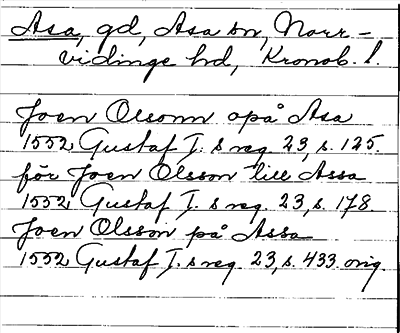 Asa, gd, Asa sn, Norr-
vidinge hd, Kronob. l.
Joen Olsonn opå Asa
1552 Gustaf I. s reg. 23, s. 125.
för Joen Olsson till Assa
1552 Gustaf I. s reg. 23, s. 178
Joen Olsson på Assa
1552 Gustaf I. s reg. 23, s. 433 orig.